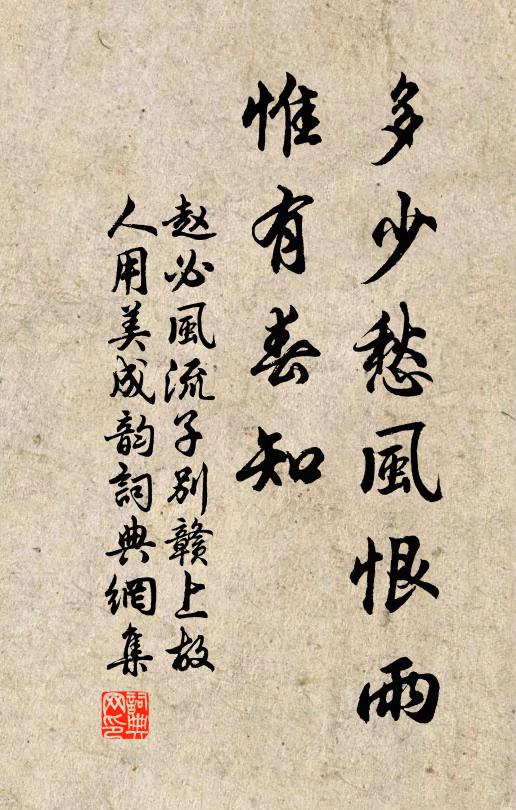 多少愁風恨雨
惟有春知
赵必風流子别贛上故
人用美成韵詞典網集
詞典网印